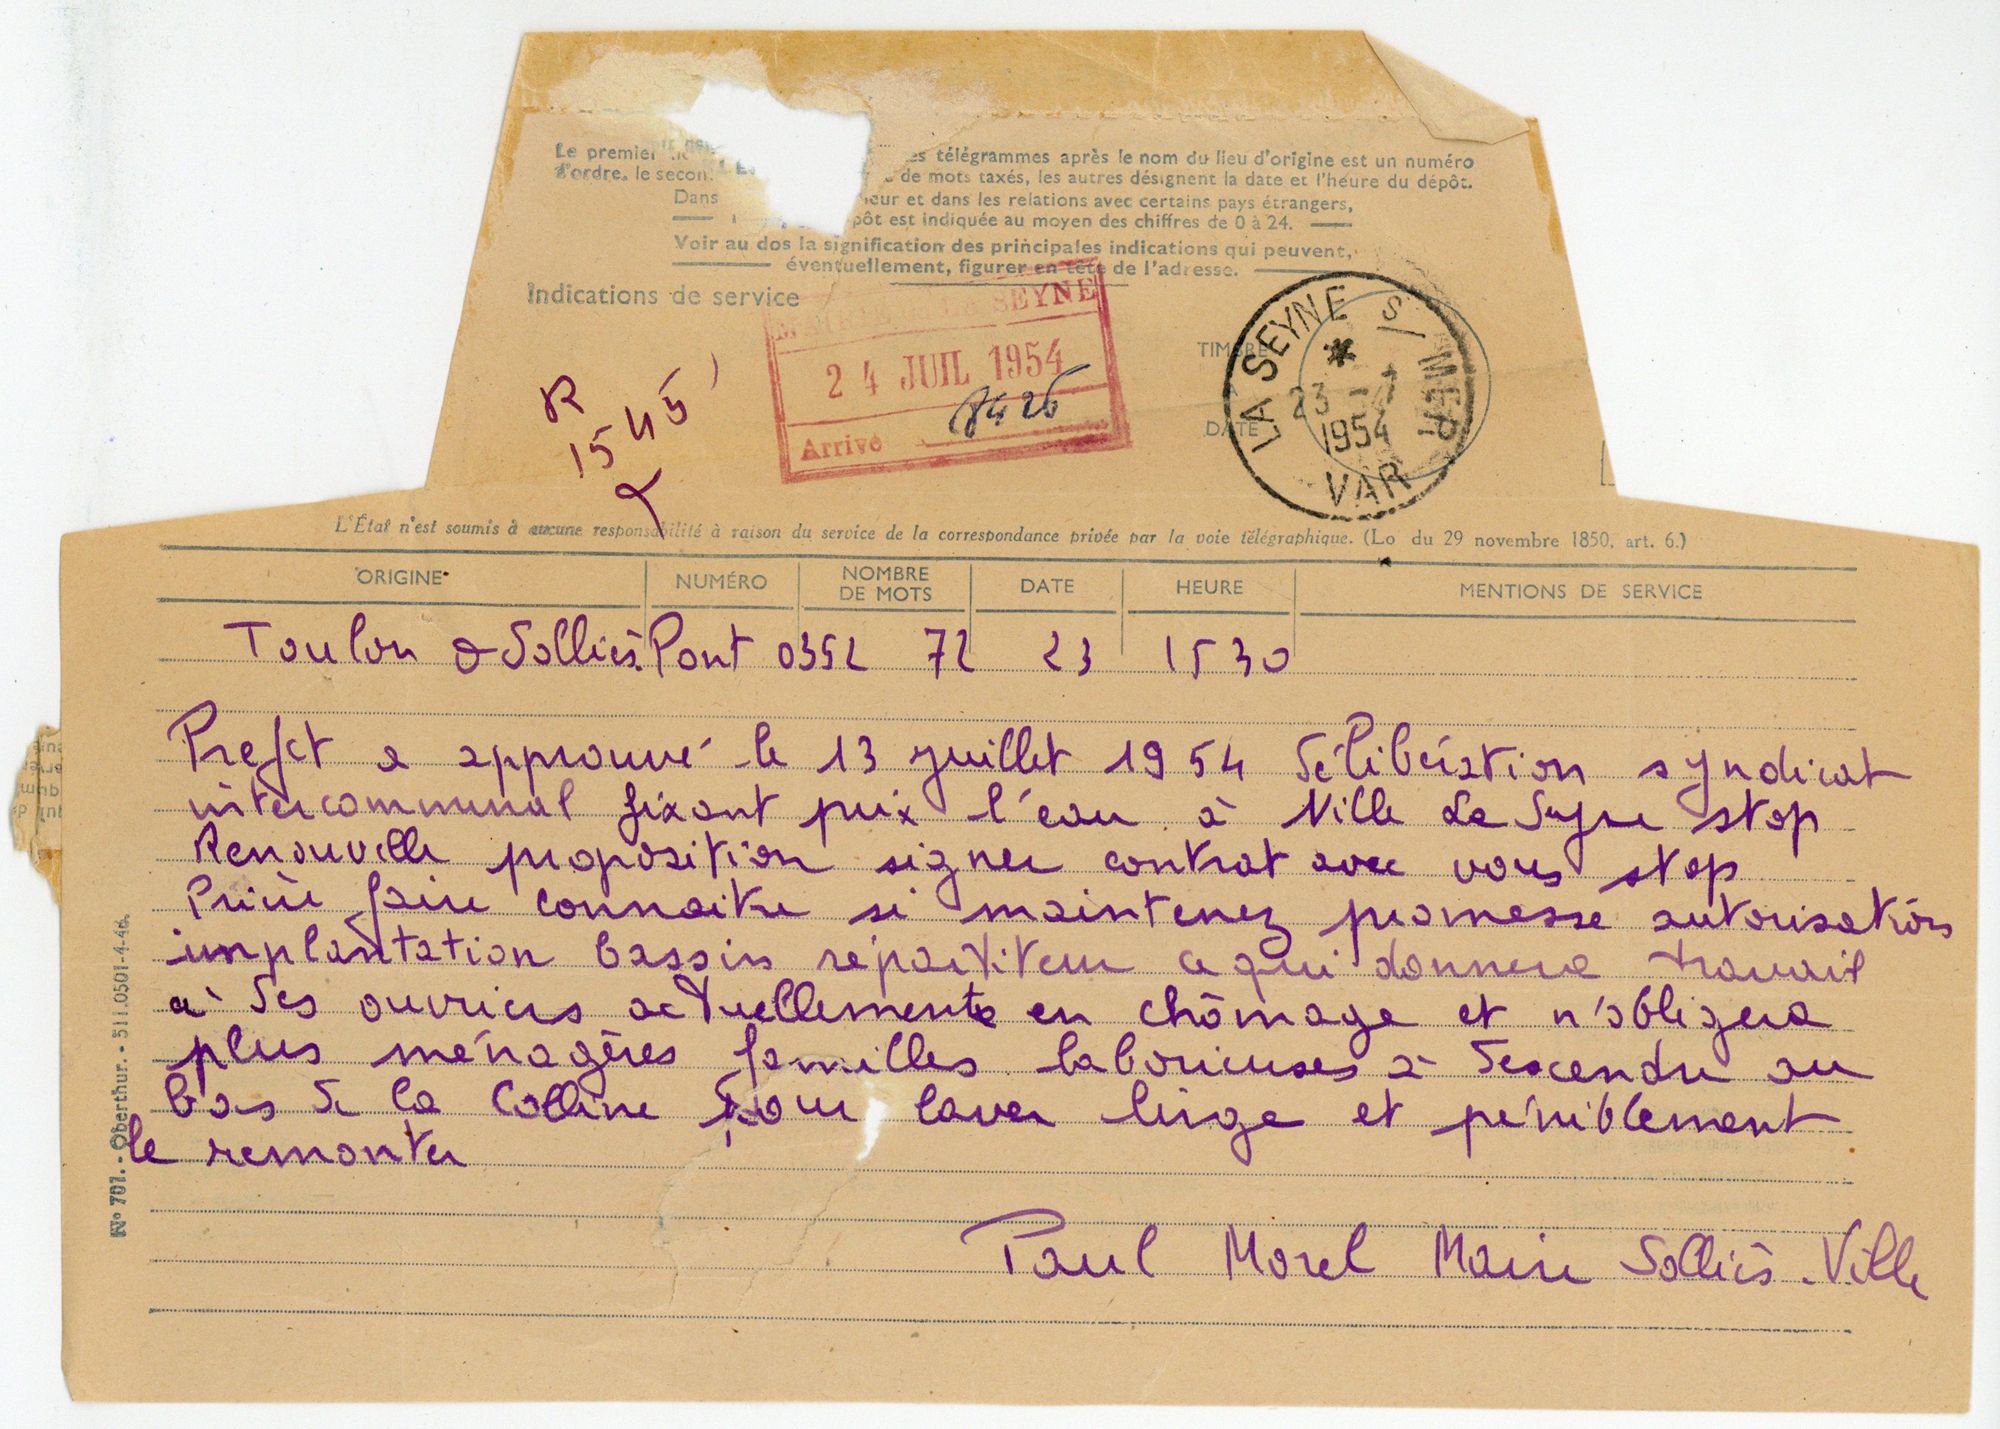 Le premier es télégrammes après le nom du lieu d'origine est un numéro
d'ordre, le secon de mots taxés, les autres désignent la date et l'heure du dépôt.
Dans ieur et dans les relations avec certains pays étrangers,
pôt est indiquée au moyen des chiffres de 0 à 24.
Voir au dos la signification des principales indications qui peuvent,
éventuellement, figurer en tête de l'adresse.
Indications de service
MAIRIE DE LA SEYNE
24 JUIL 1954
8426
Arrivé
R
1545
TIMBRE
DATE
LA SEYNE S/MER
23 -7
1954
VAR
L'État n'est soumis à aucune responsabilité à raison du service de la correspondance privée par la voie télégraphique. (Lo du 29 novembre 1850, art. 6.)
ORIGINE NUMÉRO NOMBRE DE MOTS DATE HEURE MENTIONS DE SERVICE
Toulon de Solliès Pont 0352 72 23 1530
Prefet a approuvé le 13 juillet 1954 délibération syndicat
intercommunal fixant prix l'eau à Ville La Seyne stop
Renouvelle proposition signer contrat avec vous stop
Prière faire connaitre si maintenez promesse autorisation
implantation bassin répartiteur ce qui donnera travail
à des ouvriers actuellement en chômage et n'obligera
plus ménagères familles laborieuses à descendre au
bas de la colline pour laver linge et péniblement
le remonter
Paul Morel Maire Solliès-Ville
N° 701. - Oberthur. - 511.0501-4-46.